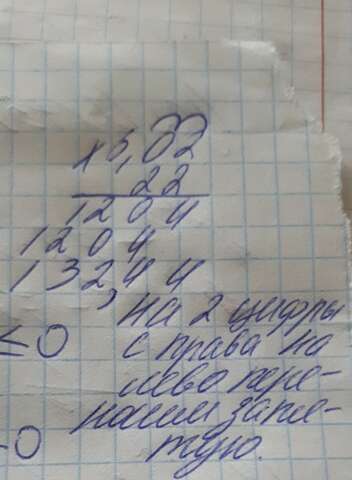 х 6,02
22
1204
1204
13244
, на 2 цифры
≤0 с права на
лево пере-
-0 носим запя-
тую.